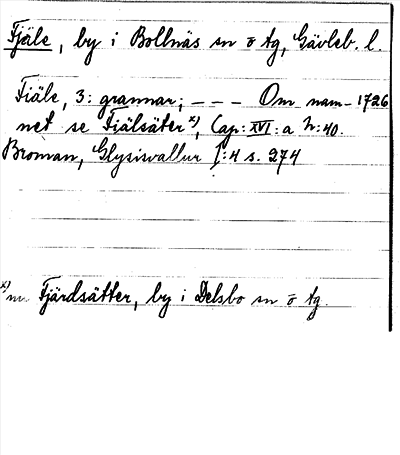 Fjäle, by i Bollnäs sn o tg, Gävleb. l.
Fiäle, 3: grannar; – – – Om nam- 1726
net se Fiälsäter x), Cap: XVI: a N: 40.
Broman, Glysisvallur I: 4 s. 274
x) nu Fjärdsätter, by i Delsbo sn o tg.